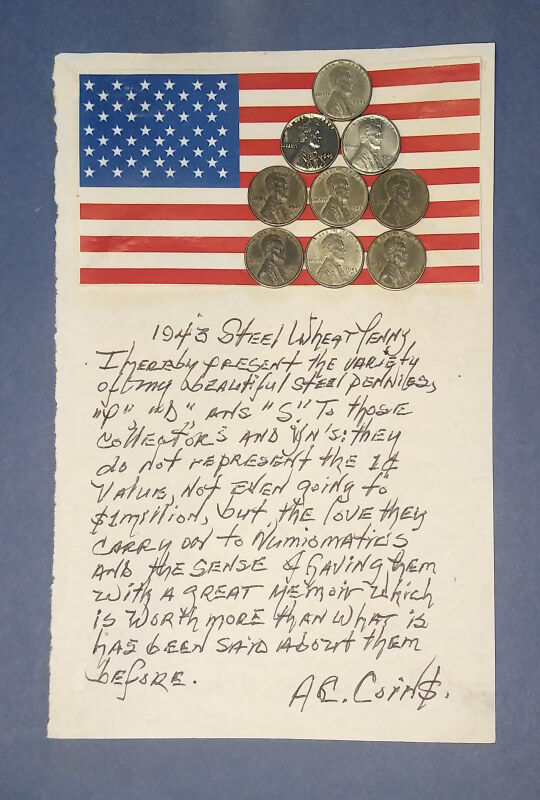 1943 Steel Wheat Penny
I hereby present the variety
of my beautiful Steel pennies,
"P" "D" ans "S". To those
collectors and YN's: they
do not represent the 1¢
Value, not even going to
$1million, but, the love they
carry on to Numiomatics
and the sense of having them
with a great memoir which
is worth more than what is
has been said about them
before.
A.C. Coin$.